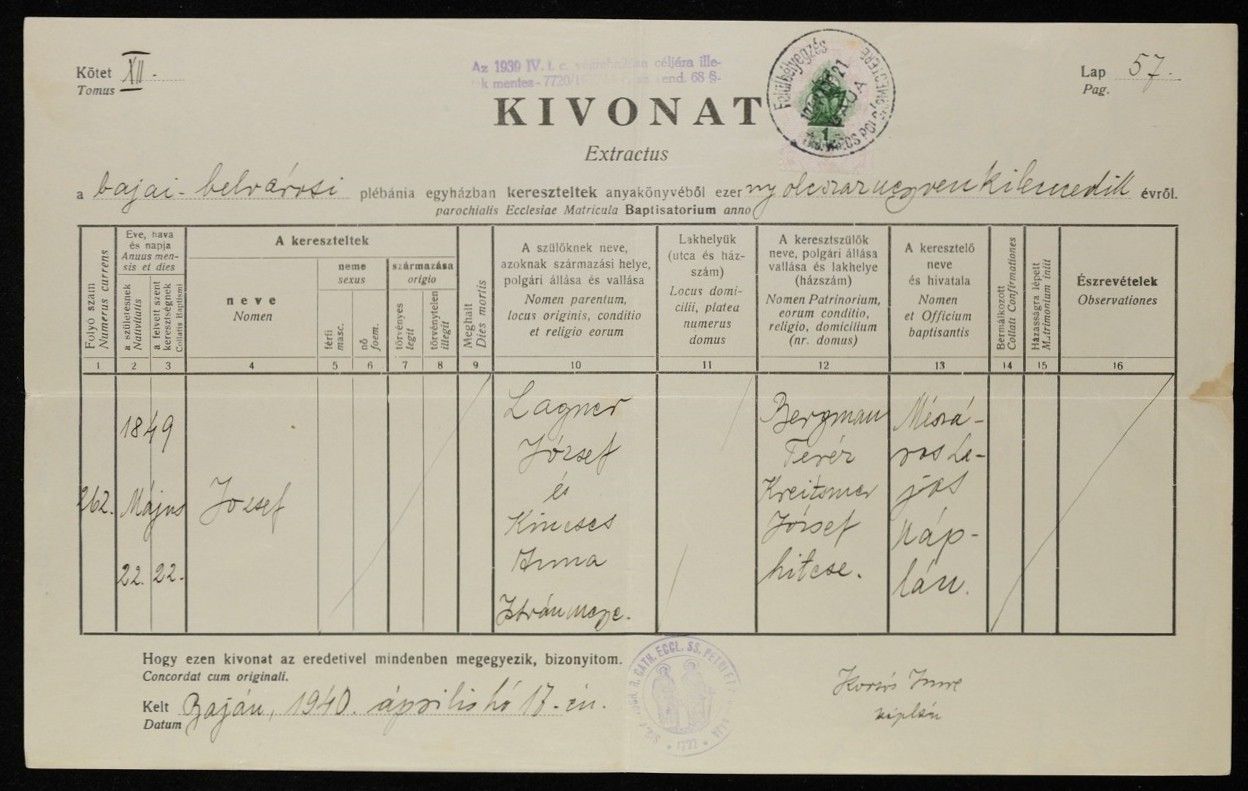 Kötet XII.
Tomus
Az 1939 IV. t. c. végrehajtása céljára ille-
tékmentes - 7720/1 rend. 68 §-
Felülbélyegzés
BAJA
Lap 57.
Pag.
KIVONAT
Extractus
a bajai-belvárosi plébánia egyházban kereszteltek anyakönyvéből ezer nyolcszáznegyvenkilencedik évről.
parochialis Ecclesiae Matricula Baptisatorium anno
Folyó szám
Numerus currens
Eve, hava
és napja
Anuus men-
sis et dies
a születésnek
Nativitatis
a felvett szent
keresztségnek
Collatis Baptismi
A kereszteltek
neve
Nomen
neme
sexus
férfi
masc.
nő
foem.
származása
origio
törvényes
legit
törvénytelen
illegit
Meghalt
Dies mortis
A szülőknek neve,
azoknak származási helye,
polgári állása és vallása
Nomen parentum,
locus originis, conditio
et religio eorum
Lakhelyük
(utca és ház-
szám)
Locus domi-
cilii, platea
numerus
domus
A keresztszülők
neve, polgári állása
vallása és lakhelye
(házszám)
Nomen Patrinorium,
eorum conditio,
religio, domicilium
(nr. domus)
A keresztelő
neve
és hivatala
Nomen
et Officium
baptisantis
Bermálkozott
Collati Confirmationes
Házasságra lépett
Matrimonium iniit
Észrevételek
Observationes
1 2 3 4 5 6 7 8 9 10 11 12 13 14 15 16
262.
1849
Május
22. 22.
József
Lagner
József
és
Kincses
Anna
István
Bergman
Teréz
Kreitsmer
József
hitese.
Mészá-
ros La-
jos
káp-
lán.
Hogy ezen kivonat az eredetivel mindenben megegyezik, bizonyitom.
Concordat cum originali.
Kelt Baján, 1940. április hó 17-én.
Datum
R. CATH. ECCL. SS. PETRI ET
Imre
káplán